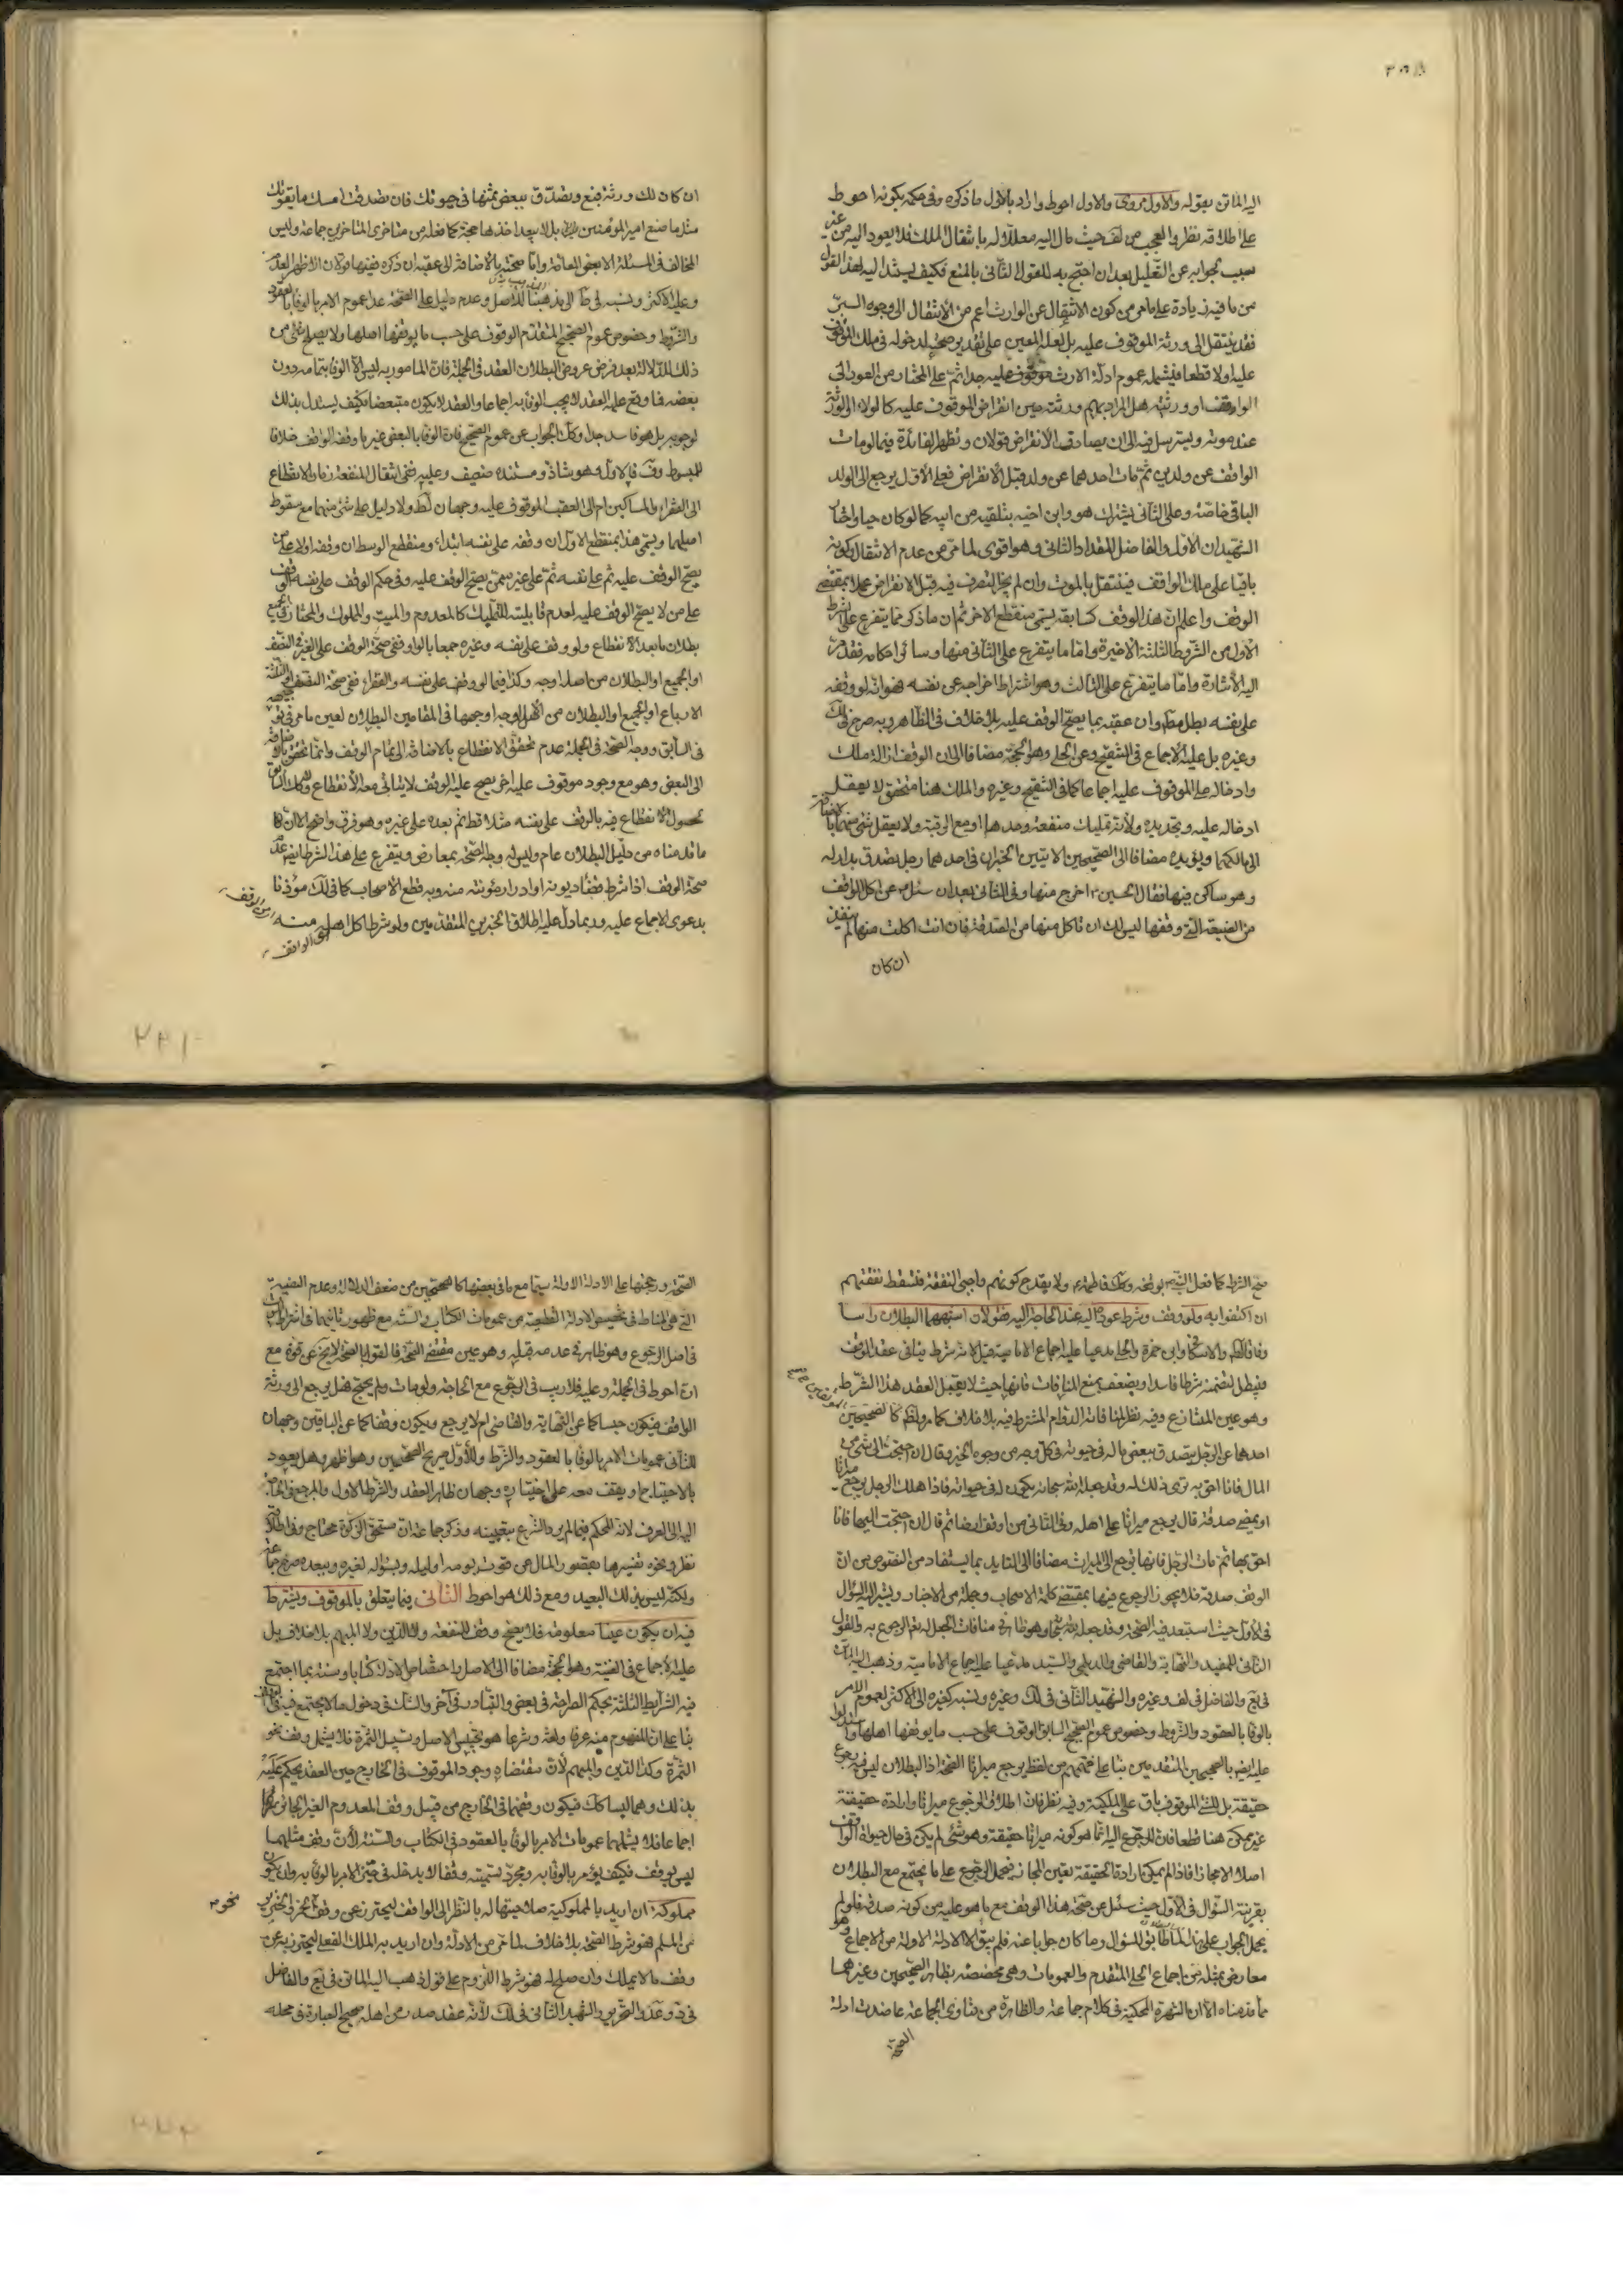 اليه الماتن بقوله والاول مروى والاول احوط واراد بالاول ما ذكره وفى حكمه بكونه احوط
على اطلاقه نظر والعجب من لف حيث مال اليه معللا له بانتقال الملك فلا يعود اليه من غير
سبب بجوابه عن التعليل بعد ان احتج به للقول الثانى بالمنع فكيف يستند اليه لهذا القول
من ما فيه زيادة على ما مر من كون الانتقال عن الوارث اعم من الانتقال الى وجوه البر
فقد ينتقل الى ورثة الموقوف عليه بل لعله المعين على تقدير صحة دخوله فى ملك الموقوف
عليه اولا قطعا فيشمله عموم ادلة الارث موقوف عليه جدا ثم على المختار من العود الى
الواقف او ورثته هل المراد بهم ورثته حين انقراض الموقوف عليه كالولاء او الورثة
عند موته ويسترسل فيه الى ان يصادف الانقراض قولان وتظهر الفائدة فيما لو مات
الواقف عن ولدين ثم مات احدهما عن ولد قبل الانقراض فعلى الاول يرجع الى الولد
الباقى خاصة وعلى الثانى يشترك هو وابن اخيه بتلقيه من ابيه كما لو كان حيا واختار
الشهيدان الاول والفاضل المقداد الثانى وهو اقوى لما مر من عدم الانتقال وكونه
باقيا على ملك الواقف فينتقل بالموت وان لم يجز التصرف فيه قبل الانقراض عملا بمقتضى
الوقف واعلم ان هذا الوقف كسابقه يسمى منقطع الاخر ثم ان ما ذكر مما يتفرع على الشرط
الاول من الشروط الثلثة الاخيرة واما ما يتفرع على الثانى منها وسائر احكامه فقد مر
اليه الاشارة واما ما يتفرع على الثالث وهو اشتراط اخراجه عن نفسه فهو انه لو وقفه
على نفسه بطل مطلقا وان عقبه بما يصح الوقف عليه بلا خلاف فى الظاهر وبه صرح فى لك
وغيره بل عليه الاجماع فى التنقيح وعن الحلى وهو الحجة مضافا الى ان الوقف ازالة ملك
وادخاله على الموقوف عليه اجماعا كما فى التنقيح وغيره والملك هنا متحقق لا يعقل
ادخاله عليه وتجديده ولأنه تمليك منفعة وحدها او مع الرقبة ولا يعقل شئ منهما بالاضافة
الى مالكهما ويؤيده مضافا الى الصحيحين الاتيين الخبران فى احدهما رجل تصدق بدار له
وهو ساكن فيها فقال الحين اخرج منها وفى الثانى بعد ان سئل عن اكل الواقف
من الضيعة التى وقفها ليس لك ان تاكل منها من الصدقة فان انت اكلت منها لم ينفذ
ان كان
ان كان لك ورثة فبع وتصدق ببعض ثمنها فى حيوتك فان تصدقت امسك ما يقوتك
مثل ما صنع امير المؤمنين بل لا يبعد اخذها حجة كما فعله من متاخرى المتاخرين جماعة وليس
المخالف فى المسئلة الا بعض العامة واما صحته بالاضافة الى عقبه ان ذكره ففيها قولان الاظهر العدم
وعليه الاكثر ونسبه لى خا الى مذهبنا للاصل وعدم دليل على الصحة عدا عموم الامر بالوفا بالعقود
والشروط وخصوص عموم الصحيح المتقدم الوقوف على حسب ما يوقفها اهلها ولا يصلح شئ من
ذلك للدلالة بعد فرض عروض البطلان العقد فى الجملة فان المامور به ليس الا الوفا بتمامه دون
بعضه فما وقع عليه العقد لا يجب الوفا به اجماعا والعقد لا يكون متبعضا فكيف يستدل بذلك
لوجوبه بل هو فاسد جدا وكك الجواب عن عموم الصحيح فان الوفا بالبعض غير ما وقفه الواقف خلافا
للمبسوط وف فالاول وهو شاذ ومستنده ضعيف وعليه ففى انتقال المنفعة زمان الانقطاع
الى الفقراء والمساكين ام الى العقب الموقوف عليه وجهان لط ولا دليل على شئ منهما مع سقوط
اصلهما ويسمى هذا بمنقطع الاول ان وقفه على نفسه ابتداء ومنقطع الوسط ان وقفه اولا على من
يصح الوقف عليه ثم على نفسه ثم على غير ممن يصح الوقف عليه وفى حكم الوقف على نفسه الوقف
على من لا يصح الوقف عليه لعدم قابليته للتمليك كالمعدوم والميت والمملوك والمختار فى الجميع
بطلان ما بعد الانقطاع ولو وقف على نفسه وغيره جمعا بالواو ففى صحة الوقف على الغير فى النصف
او الجميع او البطلان من اصله اوجه وكذا فيما لو وقف على نفسه والفقراء ففى صحة النصف او الثلثة
الارباع او الجميع او البطلان من الاصل اوجه اوجهها فى المقامين البطلان لعين ما مر فى توجيهه
فى السابق ووجه الصحة فى الجملة عدم تحقق الانقطاع بالاضافة الى تمام الوقف وانما تحقق بالاضافة
الى البعض وهو مع وجود موقوف عليه اخر يصح عليه الوقف لا يتنافى معه الانقطاع
بحصول الانقطاع فيه بالوقف على نفسه مثلا قط ثم بعده على غيره وهو فرق واضح الا ان
ما قدمناه من دليل البطلان عام وليس له وجه الصحة بمعارض ويتفرع على هذا الشرط ايضا عدم
صحة الوقف اذا شرط قضاء ديونه او ادرار مؤنته منه وبه قطع الاصحاب كما فى لك مؤذنا
بدعوى الاجماع عليه وربما دل عليه اطلاق الخبرين المتقدمين ولو شرط اكل اهله منه
صح الشرط كما فعل النبى بوقفه وكك فاطمة ولا يقدح كونهم واجبى النفقة فتسقط نفقتهم
ان اكتفوا به ولو وقف وشرط عوده اليه عند الحاجة اليه فقولان اشهرهما البطلان راسا
وفاقا للط والاسكافى وابن حمزة والحلى مدعيا عليه اجماع الامامية قيل لانه شرط ينافى عقد الوقف
فيبطل لتضمنه شرطا فاسدا ويضعف بمنع المنافات فانها حيث لا يقبل العقد هذا الشرط
وهو عين المتنازع وفيه نظر لمنافاته الدوام المشترط فيه بلا خلاف كما مر ولظ كالصحيحين
احدهما عن الرجل يتصدق ببعض ماله فى حيوته فى كل وجه من وجوه الخير وقال ان احتجت الى شئ من
المال فانا احق به ترى ذلك له وقد جعله الله سبحانه يكون له فى حيوته فاذا هلك الرجل يرجع ميراثا
او يمضى صدقة قال يرجع ميراثا على اهله وفى الثانى من اوقف ارضا ثم قال ان احتجت اليها فانا
احق بها ثم مات الرجل فانها ترجع الى الميراث مضافا الى التايد بما يستفاد من النصوص من ان
الوقف صدقة فلا يجوز الرجوع فيها بمقتضى كلمة الاصحاب وجملة من الاخبار ويشير اليه السؤال
فى الاول حيث استبعد فيه الصحة وقد جعله الله وهو ظاهر فى منافات الجعل له تعم الرجوع به والقول
الثانى للمفيد والنهاية والقاضى والديلمى والسيد مدعيا عليه اجماع الامامية وذهب اليه الماتن
فى يع والفاضل فى لف وغيره والشهيد الثانى فى لك وغيره ونسبه كغيره الى الاكثر لعموم الامر
بالوفا بالعقود والشروط وخصوص عموم الصحيح السابق الوقوف على حسب ما يوقفها اهلها واستدلوا
عليه ايضا بالصحيحين المتقدمين بناء على فهمهم من لفظ يرجع ميراثا الصحة اذ البطلان ليس فيه رجوع
حقيقة بل الشئ الموقوف باق على الملكية وفيه نظر فان اطلاق الرجوع ميراثا وارادة حقيقته
غير ممكن هنا قطعا فان المرجوع اليه انما هو كونه ميراثا حقيقة وهو شئ لم يكن فى حال حيوة الواقف
اصلا الا مجازا فاذا لم يمكن ارادة الحقيقة تعين المجاز فيحمل الرجوع على ما يجتمع مع البطلان
بقرينة السؤال فى الاول حيث سئل عن صحة هذا الوقف مع ما هو عليه من كونه صدقة فلو لم
يحمل الجواب على ذلك لما طابق للسؤال وما كان جوابا عنه فلم يبق الا الادلة الاولة من الاجماع وهو
معارض بمثله من اجماع الحلى المتقدم والعمومات وهى مخصصة بظاهر الصحيحين وغيرهما
مما قدمناه الا ان الشهرة المحكية فى كلام جماعة والظاهرة من فتاوى الجماعة عاضدت ادلة
الصحة
الصحة ورجحتها على الادلة الاولة سيما مع ما فى بعضها كالصحيحين من ضعف الدلالة وعدم الصريحية
التى هى المناط فى تخصيص الادلة القطعية من عمومات الكتاب والسنة مع ظهور ثانيهما فى اشتراط
فى اصل الرجوع وهو ظاهر فى عدمه قبله وهو عين مقتضى الصحة فالقول بالصحة لا يخ عن قوة مع
انه احوط فى الجملة وعليه فلا ريب فى الرجوع مع الحاجة ولو مات ولم يحتج فهل يرجع الى ورثة
الواقف فيكون حبسا كما عن النهاية والقاضى ام لا يرجع ويكون وقفا كما عن الباقين وجهان
للثانى عمومات الامر بالوفا بالعقود والشرط وللاول صريح الصحيحين وهو اظهر وهل يعود
بالاحتياج او يقف معه على اختياره وجهان ظاهر العقد والشرط الاول والمرجع فى الحاجة
اليه الى العرف لانه المحكم فيما لم يرد الشرع بتعيينه وذكر جماعة ان مستحق الزكوة محتاج وفى اطلاقه
نظر ونحوه تفسيرها بقصور المال عن قوت يومه وليله وبسؤاله لغيره وبعده صرح جماعة
ولكنه ليس بذلك البعيد ومع ذلك هو احوط الثانى فيما يتعلق بالموقوف ويشترط
فيه ان يكون عينا معلومة فلا يصح وقف المنفعة ولا الدين ولا المبهم بلا خلاف بل
عليه الاجماع فى الغنية وهو الحجة مضافا الى الاصل واختصاص الادلة كتابا وسنة بما اجتمع
فيه الشرائط الثلثة بحكم الصراحة فى بعض والتبادر فى آخر والشك فى دخول ما لا يجتمع فيه
بناء على ان المفهوم منه عرفا ولغة وشرعا هو تحبيس الاصل وتسبيل الثمرة فلا يشمل وقف نحو
الثمرة وكذا الدين والمبهم لأن مقتضاه وجود الموقوف فى الخارج حين العقد يحكم عليه
بذلك وهما ليسا كك فيكون وقفهما فى الخارج من قبيل وقف المعدوم الغير الجائز
اجماعا فلا يشملهما عمومات الامر بالوفا بالعقود فى الكتاب والسنة لأن وقف مثلهما
ليس بوقف فكيف يؤمر بالوفا به ومجرد تسميته وقفا لا يدخله فى حيز الامر بالوفا به وان يكون
مملوكة ان اريد بالمملوكية صلاحيتها له بالنظر الى الواقف ليحترز عن وقف نحو الخمر والخنزير
من المسلم فهو شرط الصحة بلا خلاف لما مر من الادلة وان اريد به الملك الفعلى ليحترز به عن
وقف ما لا يملك وان صلح له فهو شرط اللزوم على قول ذهب اليه الماتن فى يع والفاضل
فى د وعد والتحرير والشهيد الثانى فى لك لأنه عقد صدر من اهله صحيح العبارة فى محله